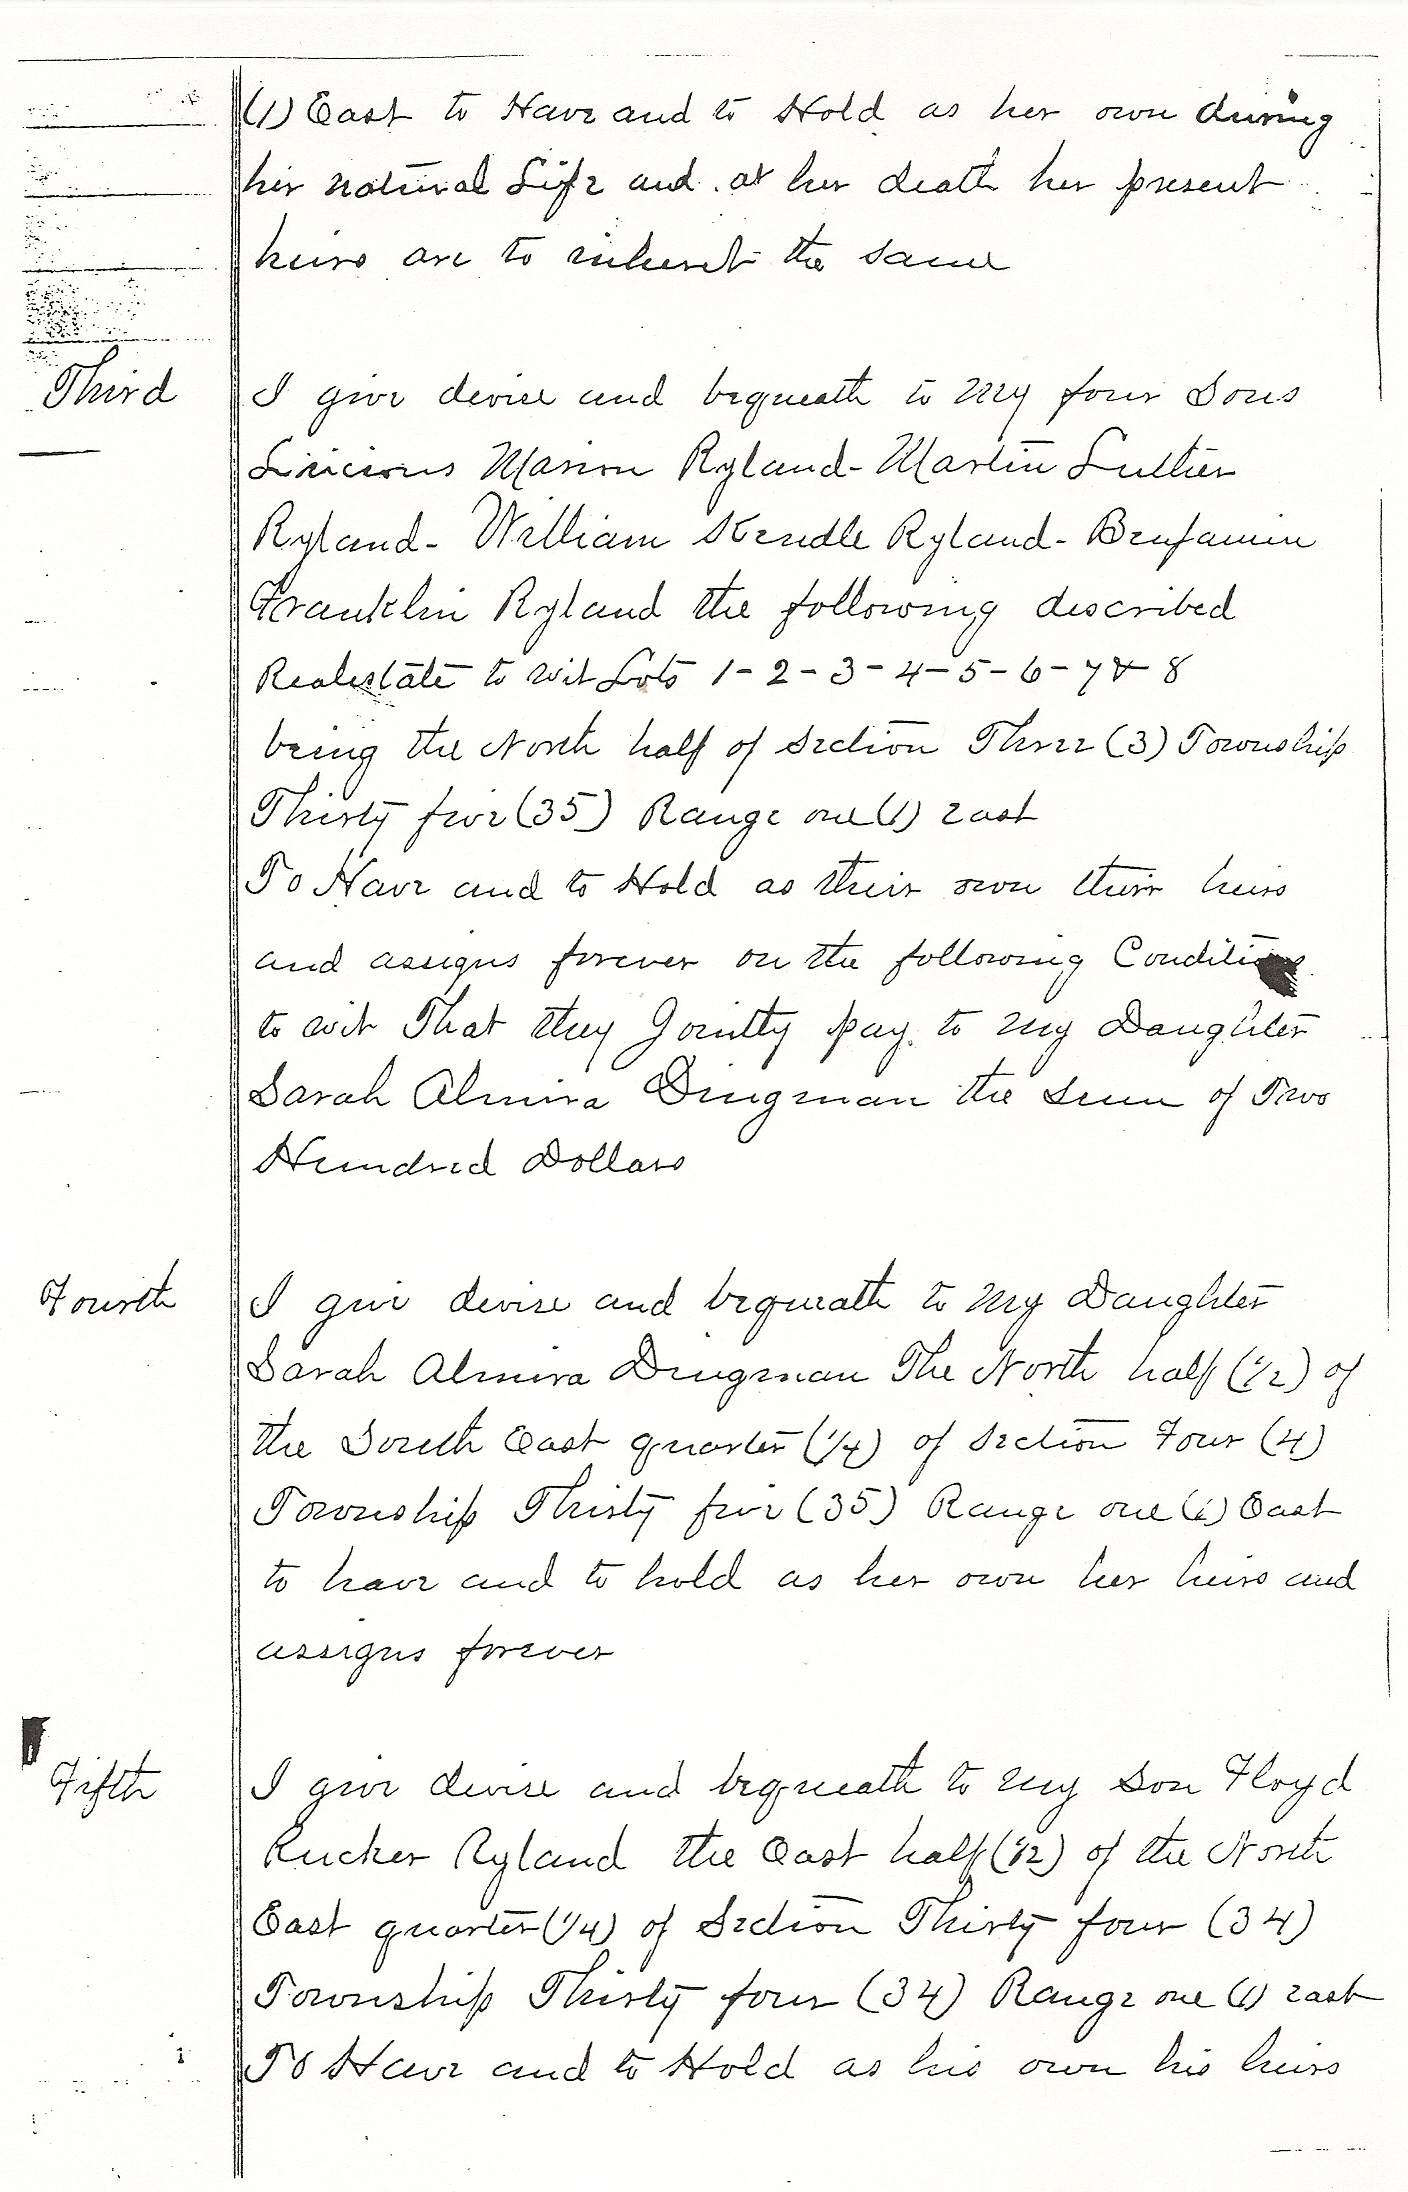 (1) East to Have and to Hold as her own during
her natural Life and at her death her present
heirs are to inherit the same
Third I give devise and bequeath to My four Sons
Marion Ryland - Martin Luther
Ryland - William Kendle Ryland - Benjamin
Franklin Ryland the following described
Realestate to wit Lots 1 - 2 - 3 - 4 - 5 - 6 - 7 & 8
being the North half of Section Three (3) Township
Thirty five (35) Range one (1) east
To Have and to Hold as their own their heirs
and assigns forever on the following Conditions
to wit That they Jointly pay to my Daughter
Sarah Almira Dingman the Sum of Two
Hundred Dollars
Fourth I give devise and bequeath to My Daughter
Sarah Almira Dingman The North half (1/2) of
the South East quarter (1/4) of Section Four (4)
Township Thirty five (35) Range one (1) East
to have and to hold as her own her heirs and
assigns forever
Fifth I give devise and bequeath to my Son Floyd
Rucker Ryland the East half (1/2) of the North
East quarter (1/4) of Section Thirty four (34)
Township Thirty four (34) Range one (1) east
To Have and to Hold as his own his heirs